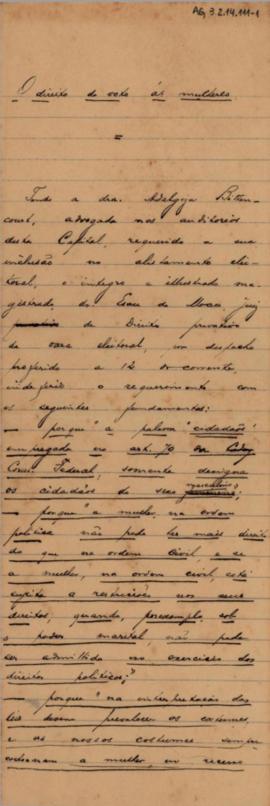 AG 3.2.14.111-1
O direito do voto ás mulheres.
=
Tendo a dra. Adalgiza Bitten-
court, advogada nos auditorios
desta Capital, requerido a sua
inclusão no alistamento elei-
toral, o integro e illustrado ma-
gistrado, dr. juiz
de Direito privativo
da vara eleitoral, por despacho
proferido a 12 do corrente,
indeferiu o requerimento com
os seguintes fundamentos:
— porque "a palavra "cidadãos"
empregada no art. 70 da
Const. Federal, somente designa
os cidadãos do sexo masculino;
— porque "a mulher, na ordem
politica não pode ter mais direito
do que na ordem civil, e se
a mulher, na ordem civil, está
sujeita a restricções nos seus
direitos, quando, por exemplo, sob
o poder marital, não pode
ser admittida no exercicio dos
direitos politicos;"
— porque "na interpretação das
leis devem prevalecer os costumes,
e os nossos costumes sempre
a mulher, em